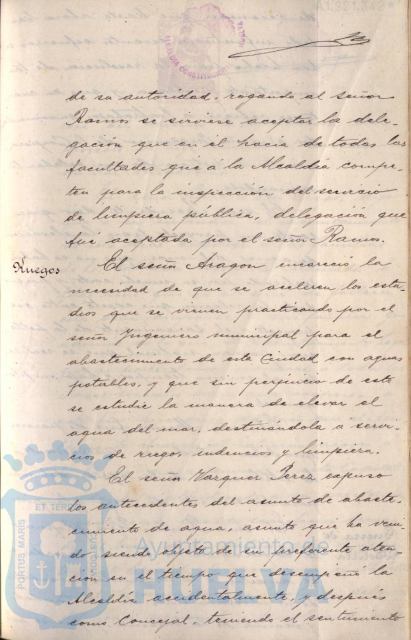 de su autoridad, rogando al señor
Ramos se sirviese aceptar la dele-
gación que en él hacia de todas las
facultades que á la Alcaldía compe-
ten para la inspección del servicio
de limpieza pública, delegación que
fué aceptada por el señor Ramos.
Ruegos
El señor Aragon encareció la
necesidad de que se aceleren los estu-
dios que se vienen practicando por el
señor Ingeniero municipal para el
abastecimiento de esta Ciudad con aguas
potables, y que sin perjuicio de esto
se estudie la manera de elevar el
agua del mar, destinándola a servi-
cios de riegos, incencios y limpieza.
El señor Vazquez Perez expuso
los antecedentes del asunto de abaste-
cimiento de agua, asunto que ha veni-
do siendo objeto de su preferente aten-
ción en el tiempo que desempeñó la
Alcaldía accidentalmente, y después
como Concejal, teniendo el sentimiento
PORTUS MARIS
ET TERRE
Ayuntamiento de
HUELVA